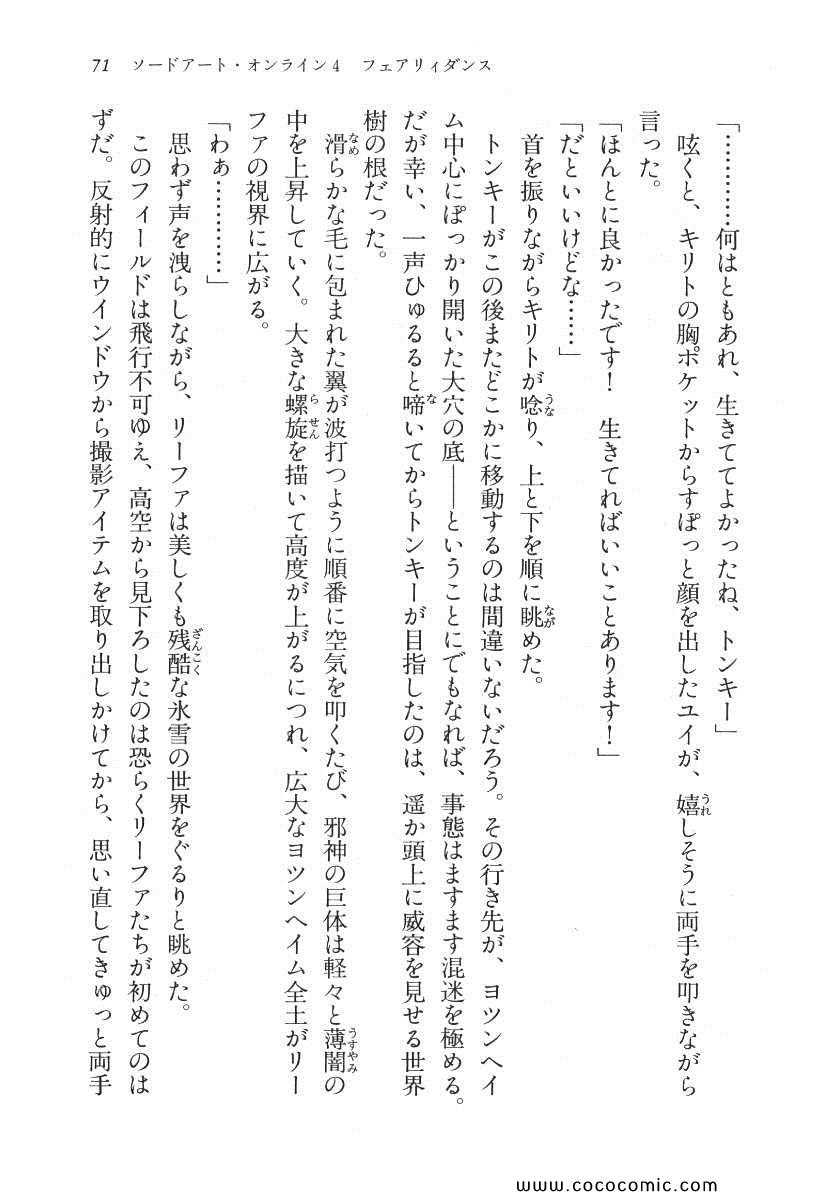 71 ソードアート・オンライン4 フェアリィダンス
「…………何はともあれ、生きててよかったね、トンキー」
呟くと、キリトの胸ポケットからすぽっと顔を出したユイが、嬉しそうに両手を叩きながら
言った。
「ほんとに良かったです！　生きてればいいことあります！」
「だといいけどな……」
首を振りながらキリトが唸り、上と下を順に眺めた。
トンキーがこの後またどこかに移動するのは間違いないだろう。その行き先が、ヨツンヘイ
ム中心にぽっかり開いた大穴の底――ということにでもなれば、事態はますます混迷を極める。
だが幸い、一声ひゅるると啼いてからトンキーが目指したのは、遥か頭上に威容を見せる世界
樹の根だった。
滑らかな毛に包まれた翼が波打つように順番に空気を叩くたび、邪神の巨体は軽々と薄闇の
中を上昇していく。大きな螺旋を描いて高度が上がるにつれ、広大なヨツンヘイム全土がリー
ファの視界に広がる。
「わぁ…………」
思わず声を洩らしながら、リーファは美しくも残酷な氷雪の世界をぐるりと眺めた。
このフィールドは飛行不可ゆえ、高空から見下ろしたのは恐らくリーファたちが初めてのは
ずだ。反射的にウインドウから撮影アイテムを取り出しかけてから、思い直してきゅっと両手
www.cococomic.com